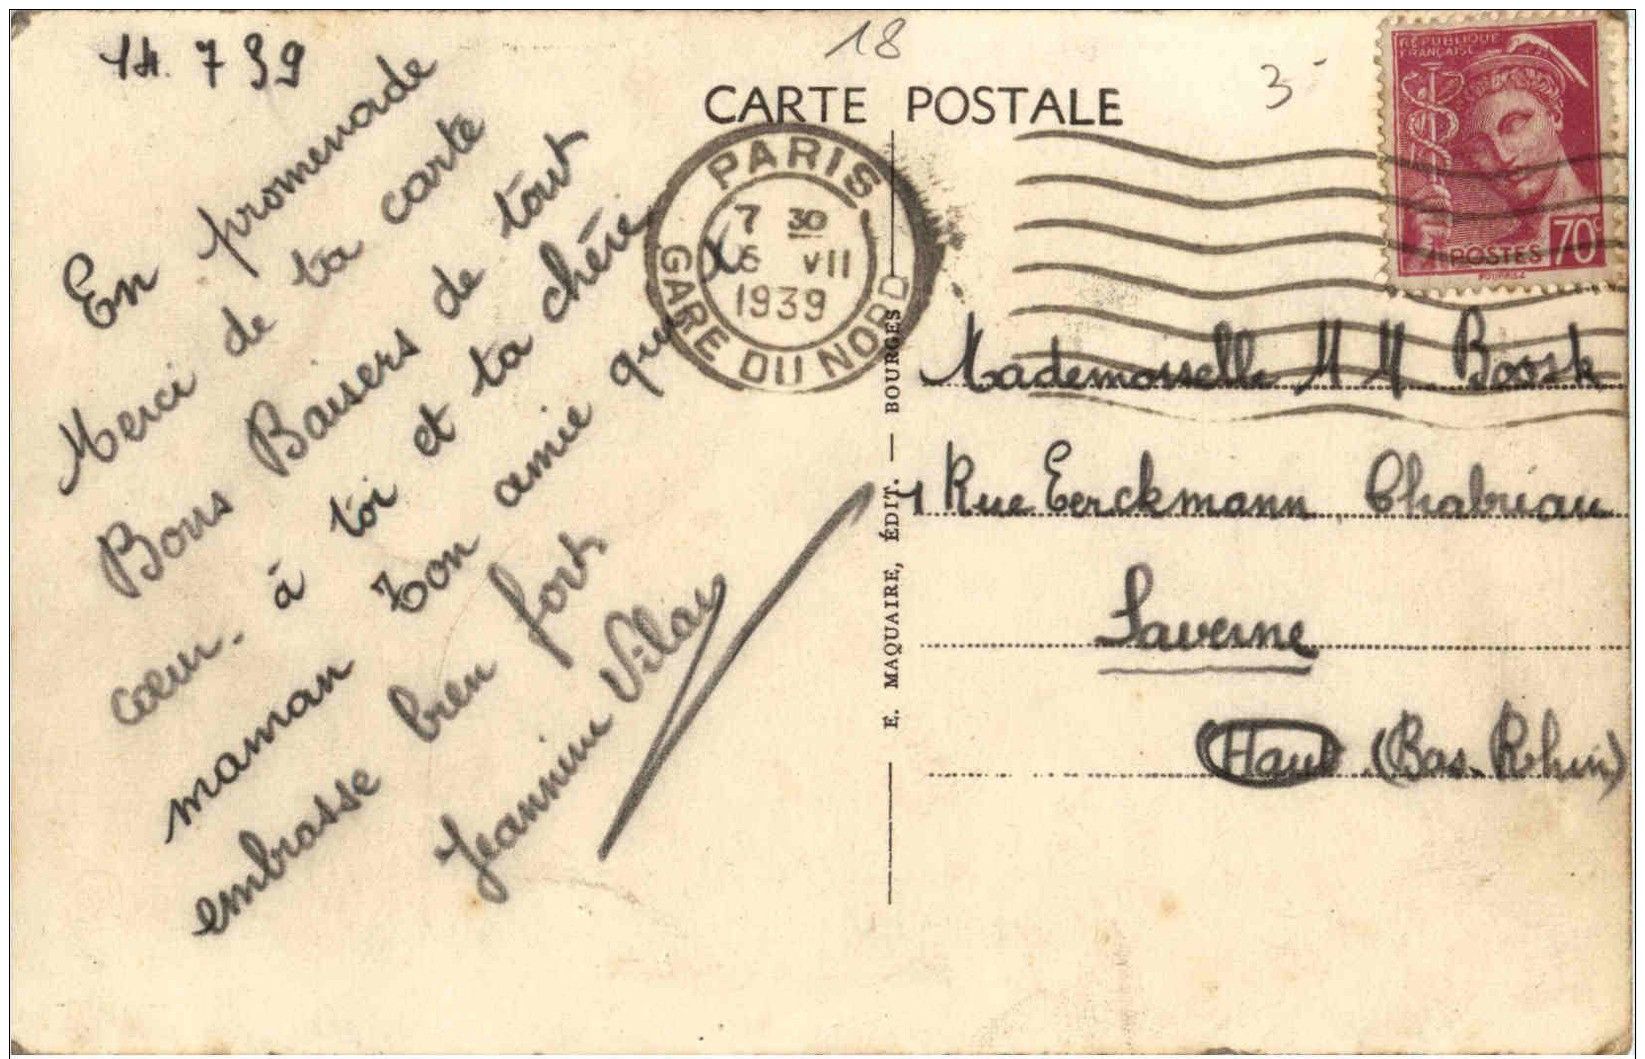 14. 7 39
En promenade
Merci de ta carte
Bons Baisers de tout
cœur. à toi et ta chère
maman Ton amie qui t'
embrasse bien fort
Jeannine
18
3-
CARTE POSTALE
PARIS
7 30
6 VII
1939
GARE DU NORD
RÉPUBLIQUE
FRANÇAISE
POSTES 70c
E. MAQUAIRE, ÉDIT. — BOURGES
Mademoiselle M M Boosk
1 Rue Eerckmann Chabriau
Saverne
Haut (Bas-Rhin)